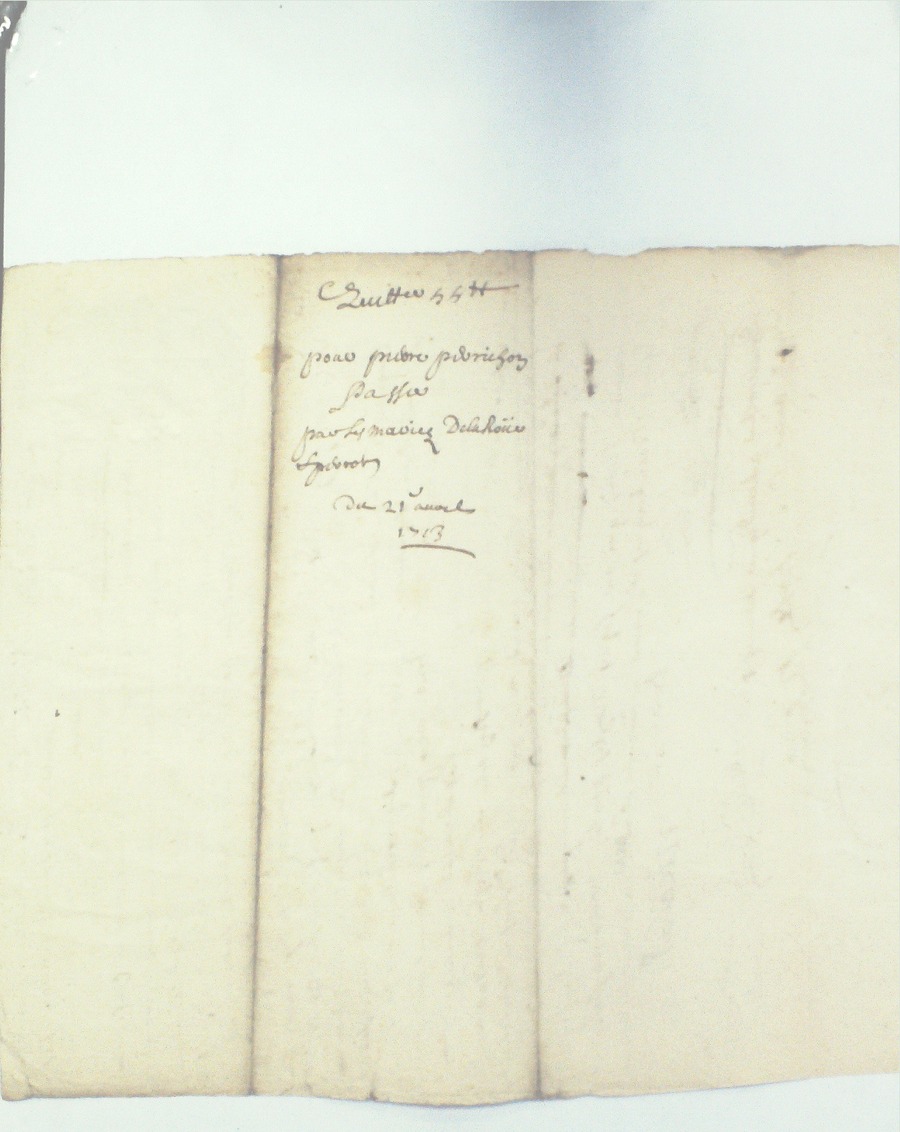 Quittce 55 tt
pour pierre pierrichon
Passée
par les mariez Delaroüe
& pierrot
Du 21e auril
1713